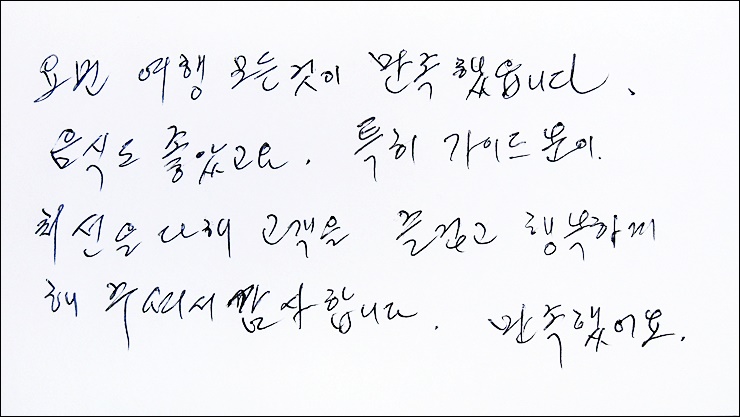 요번 여행 모든것이 만족했습니다.
음식도 좋았고요. 특히 가이드분이.
최선을 다해 고객을 즐겁고 행복하게
해 주셔서 감사합니다. 만족했어요.